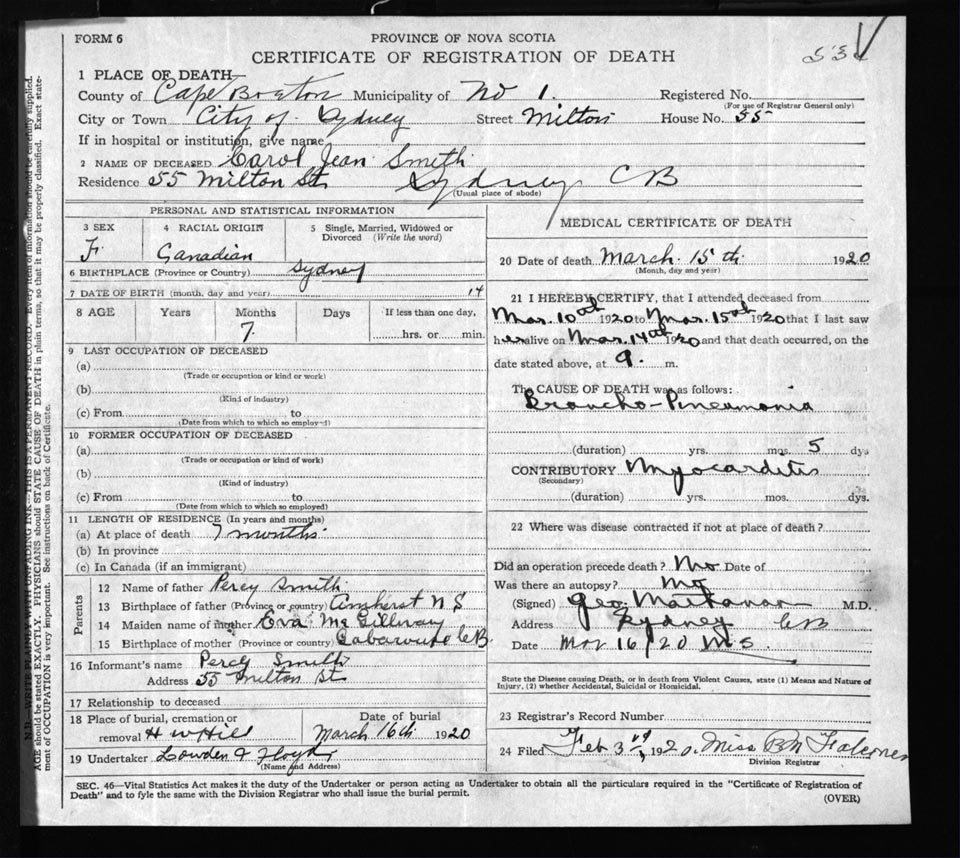 FORM 6
PROVINCE OF NOVA SCOTIA
CERTIFICATE OF REGISTRATION OF DEATH
1 PLACE OF DEATH—
County of Cape Breton Municipality of No 1. Registered No.
(For use of Registrar General only)
City or Town City of Sydney Street Milton House No. 55
If in hospital or institution, give name
2 NAME OF DECEASED Carol Jean Smith
Residence 55 Milton St Sydney CB
(Usual place of abode)
PERSONAL AND STATISTICAL INFORMATION
3 SEX F. 4 RACIAL ORIGIN Canadian 5 Single, Married, Widowed or Divorced (Write the word)
6 BIRTHPLACE (Province or Country) Sydney
7 DATE OF BIRTH (month, day and year) 14
8 AGE Years Months 7. Days If less than one day, hrs. or min.
9 LAST OCCUPATION OF DECEASED
(a)
(Trade or occupation or kind or work)
(b)
(Kind of industry)
(c) From to
(Date from which to which so employ-d)
10 FORMER OCCUPATION OF DECEASED
(a)
(Trade or occupation or kind of work)
(b)
(Kind of industry)
(c) From to
(Date from which to which so employed)
11 LENGTH OF RESIDENCE (In years and months)
(a) At place of death 7 months.
(b) In province
(c) In Canada (if an immigrant)
Parents
12 Name of father Percy Smith
13 Birthplace of father (Province or country) Amherst N S
14 Maiden name of mother Eva Mc Gillivary
15 Birthplace of mother (Province or country) CB
16 Informant's name Percy Smith
Address 55 Milton St
17 Relationship to deceased
18 Place of burial, cremation or removal H w Hill Date of burial March 16th 1920
19 Undertaker Lowden & Floyd
(Name and Address)
MEDICAL CERTIFICATE OF DEATH
20 Date of death March 15th 1920
(Month, day and year)
21 I HEREBY CERTIFY, that I attended deceased from
Mar. 10th 1920 to Mar. 15th 1920 that I last saw
her alive on Mar. 14th 1920 and that death occurred, on the
date stated above, at 9. m.
The CAUSE OF DEATH was as follows:
Broncho-Pneumonia
(duration) yrs. mos. 5 dys
CONTRIBUTORY Myocarditis
(Secondary)
(duration) yrs. mos. dys.
22 Where was disease contracted if not at place of death?
Did an operation precede death? No Date of
Was there an autopsy? No
(Signed) Geo. M.D.
Address Sydney CB
Date Mar 16/20
State the Disease causing Death, or in death from Violent Causes, state (1) Means and Nature of
Injury, (2) whether Accidental, Suicidal or Homicidal.
23 Registrar's Record Number
24 Filed Feb 3 1920. Miss Falconer
Division Registrar
SEC. 46—Vital Statistics Act makes it the duty of the Undertaker or person acting as Undertaker to obtain all the particulars required in the "Certificate of Registration of
Death" and to fyle the same with the Division Registrar who shall issue the burial permit.
(OVER)
N.B.—WRITE PLAINLY WITH UNFADING INK—THIS IS A PERMANENT RECORD. Every item of information should be carefully supplied.
AGE should be stated EXACTLY. PHYSICIANS should STATE CAUSE OF DEATH in plain terms, so that it may be properly classified. Exact state-
ment of OCCUPATION is very important. See instructions on back of Certificate.